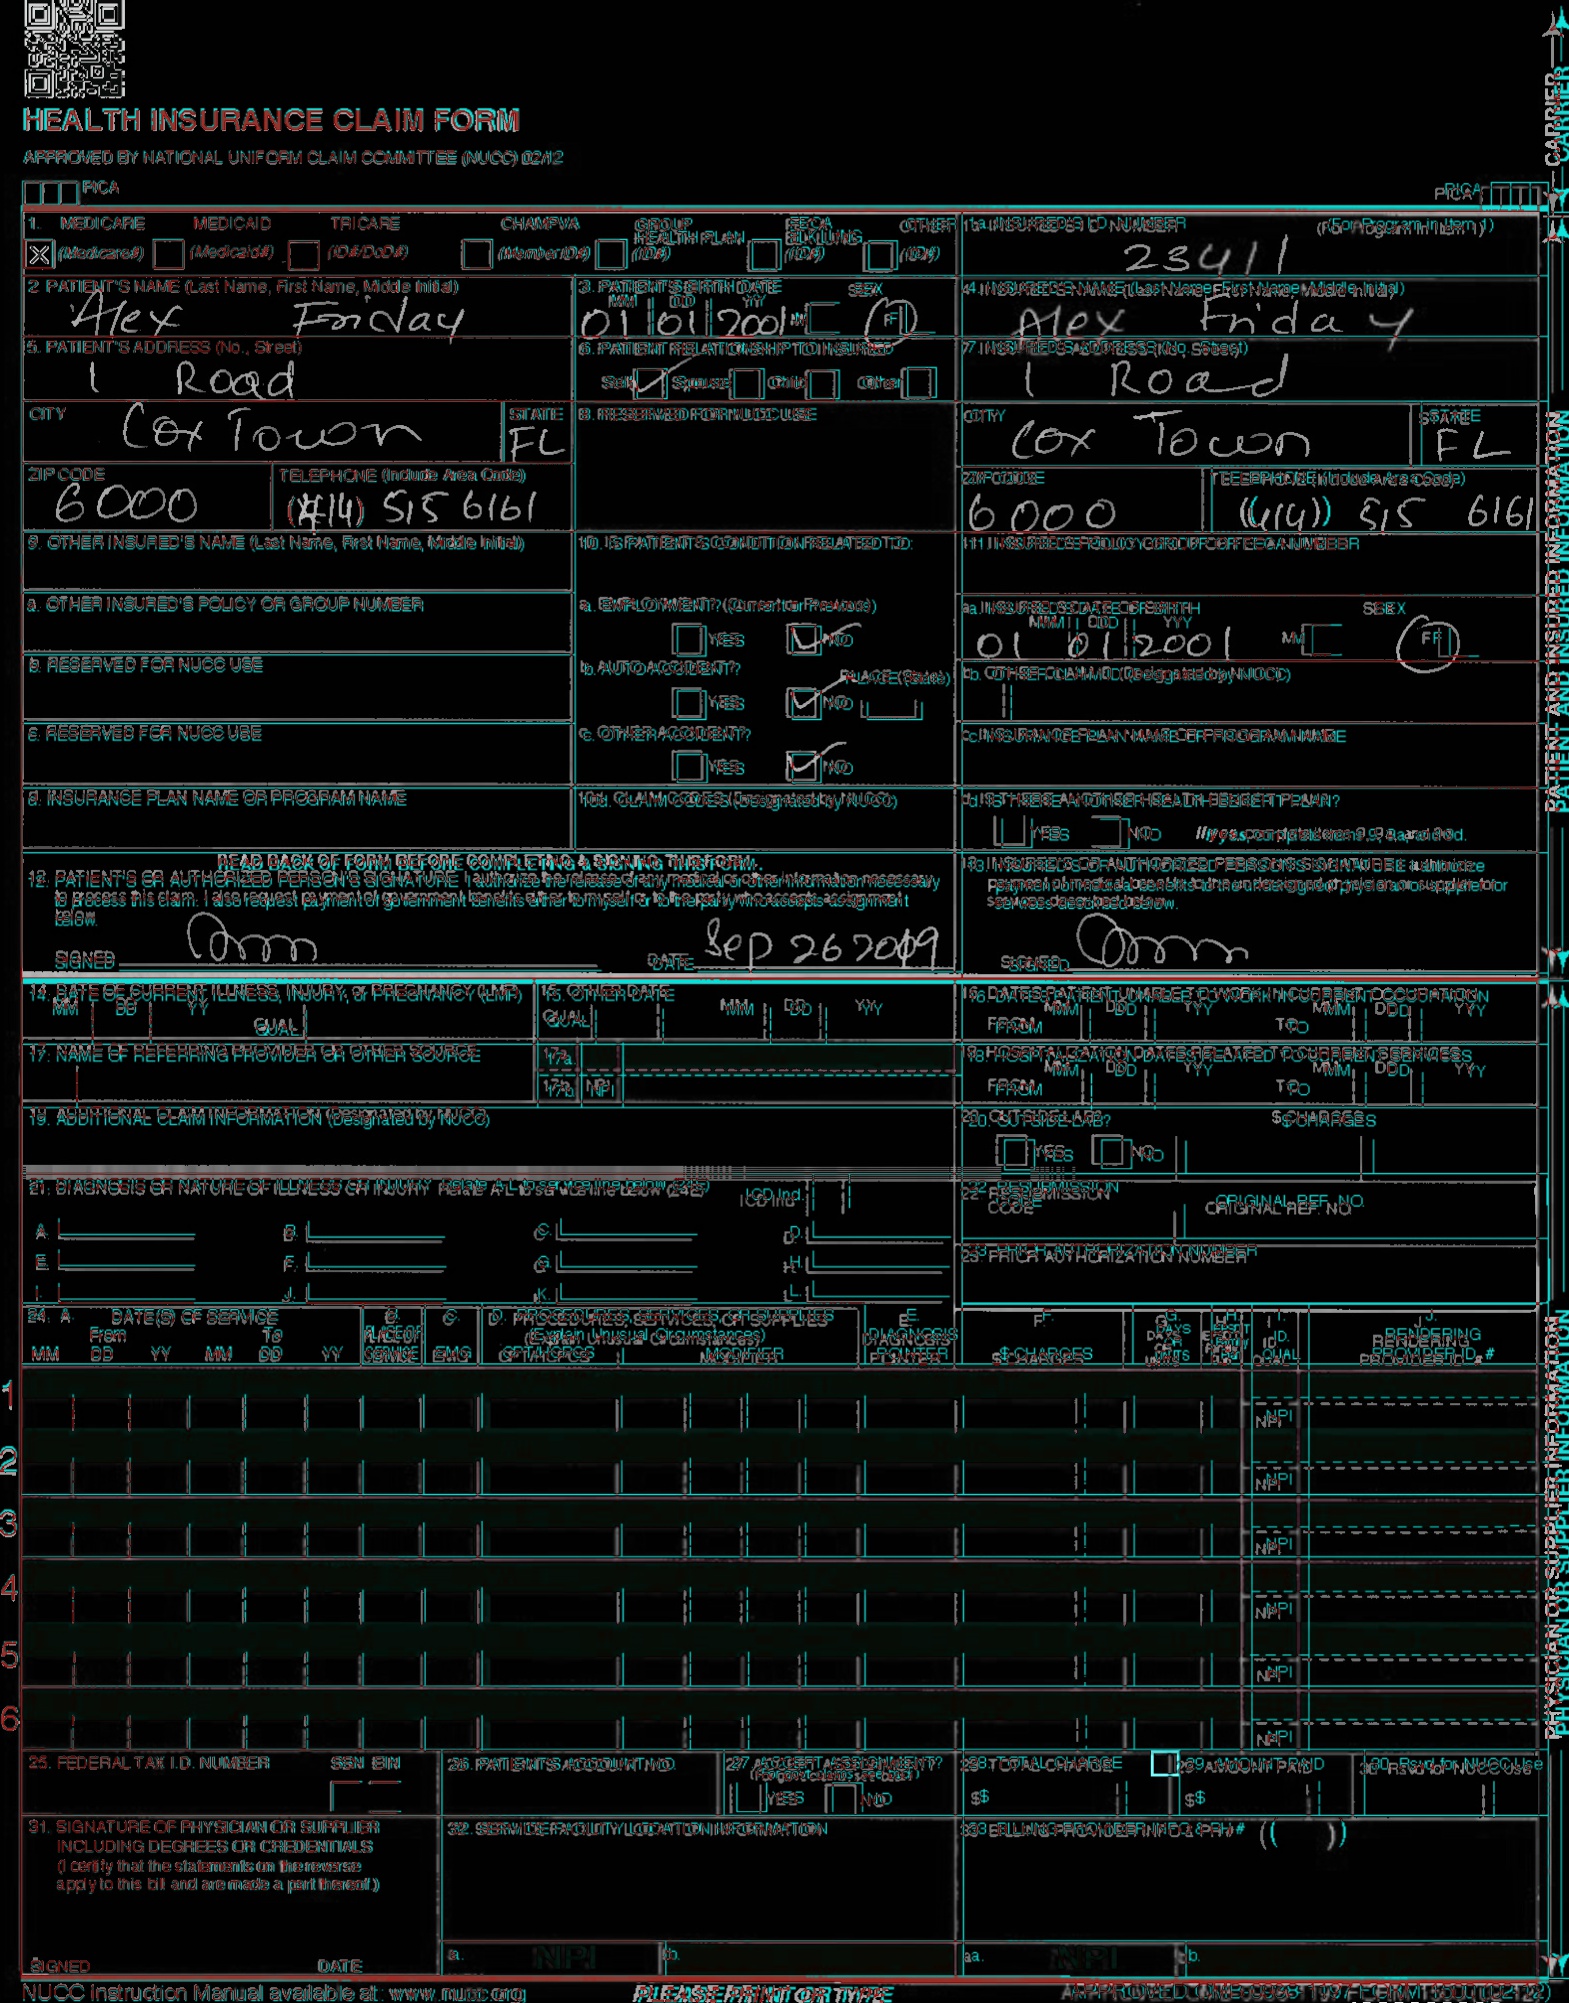 HEALTH INSURANCE CLAIM FORM
APPROVED BY NATIONAL UNIFORM CLAIM COMMITTEE (NUCC) 02/12
PICA
PICA
CARRIER
1. MEDICARE MEDICAID TRICARE CHAMPVA GROUP HEALTH PLAN FECA BLK LUNG OTHER
(Medicare#) (Medicaid#) (ID#/DoD#) (Member ID#) (ID#) (ID#) (ID#)
1a. INSURED'S I.D. NUMBER (For Program in Item 1)
23411
2. PATIENT'S NAME (Last Name, First Name, Middle Initial)
Alex Friday
3. PATIENT'S BIRTH DATE SEX
MM DD YY
01 01 2001 M F
4. INSURED'S NAME (Last Name, First Name, Middle Initial)
Alex Friday
5. PATIENT'S ADDRESS (No., Street)
1 Road
6. PATIENT RELATIONSHIP TO INSURED
Self Spouse Child Other
7. INSURED'S ADDRESS (No., Street)
1 Road
CITY
Cox Town
STATE
FL
8. RESERVED FOR NUCC USE
CITY
Cox Town
STATE
FL
ZIP CODE
6000
TELEPHONE (Include Area Code)
(414) 515 6161
ZIP CODE
6000
TELEPHONE (Include Area Code)
(414) 515 6161
9. OTHER INSURED'S NAME (Last Name, First Name, Middle Initial)
10. IS PATIENT'S CONDITION RELATED TO:
11. INSURED'S POLICY GROUP OR FECA NUMBER
a. OTHER INSURED'S POLICY OR GROUP NUMBER
a. EMPLOYMENT? (Current or Previous)
YES NO
a. INSURED'S DATE OF BIRTH SEX
MM DD YY
01 01 2001 M F
b. RESERVED FOR NUCC USE
b. AUTO ACCIDENT? PLACE (State)
YES NO
b. OTHER CLAIM ID (Designated by NUCC)
c. RESERVED FOR NUCC USE
c. OTHER ACCIDENT?
YES NO
c. INSURANCE PLAN NAME OR PROGRAM NAME
d. INSURANCE PLAN NAME OR PROGRAM NAME
10d. CLAIM CODES (Designated by NUCC)
d. IS THERE ANOTHER HEALTH BENEFIT PLAN?
YES NO If yes, complete items 9, 9a, and 9d.
PATIENT AND INSURED INFORMATION
READ BACK OF FORM BEFORE COMPLETING & SIGNING THIS FORM.
12. PATIENT'S OR AUTHORIZED PERSON'S SIGNATURE I authorize the release of any medical or other information necessary
to process this claim. I also request payment of government benefits either to myself or to the party who accepts assignment
below.
SIGNED DATE Sep 26 2019
13. INSURED'S OR AUTHORIZED PERSON'S SIGNATURE I authorize
payment of medical benefits to the undersigned physician or supplier for
services described below.
SIGNED
14. DATE OF CURRENT ILLNESS, INJURY, or PREGNANCY (LMP)
MM DD YY QUAL
15. OTHER DATE
QUAL MM DD YY
16. DATES PATIENT UNABLE TO WORK IN CURRENT OCCUPATION
MM DD YY MM DD YY
FROM TO
17. NAME OF REFERRING PROVIDER OR OTHER SOURCE
17a.
17b. NPI
18. HOSPITALIZATION DATES RELATED TO CURRENT SERVICES
MM DD YY MM DD YY
FROM TO
19. ADDITIONAL CLAIM INFORMATION (Designated by NUCC)
20. OUTSIDE LAB? $ CHARGES
YES NO
21. DIAGNOSIS OR NATURE OF ILLNESS OR INJURY Relate A-L to service line below (24E)
ICD Ind.
A. B. C. D.
E. F. G. H.
I. J. K. L.
22. RESUBMISSION CODE ORIGINAL REF. NO.
23. PRIOR AUTHORIZATION NUMBER
24. A. DATE(S) OF SERVICE
From To
MM DD YY MM DD YY
B. PLACE OF SERVICE
C. EMG
D. PROCEDURES, SERVICES, OR SUPPLIES
(Explain Unusual Circumstances)
CPT/HCPCS MODIFIER
E. DIAGNOSIS POINTER
F. $ CHARGES
G. DAYS OR UNITS
H.
I. ID. QUAL.
J. RENDERING PROVIDER ID. #
1 NPI
2 NPI
3 NPI
4 NPI
5 NPI
6 NPI
PHYSICIAN OR SUPPLIER INFORMATION
25. FEDERAL TAX I.D. NUMBER SSN EIN
26. PATIENT'S ACCOUNT NO.
27. ACCEPT ASSIGNMENT?
YES NO
28. TOTAL CHARGE
$
29. AMOUNT PAID
$
30. Rsvd for NUCC Use
31. SIGNATURE OF PHYSICIAN OR SUPPLIER
INCLUDING DEGREES OR CREDENTIALS
(I certify that the statements on the reverse
apply to this bill and are made a part thereof.)
SIGNED DATE
32. SERVICE FACILITY LOCATION INFORMATION
a. NPI b.
33. BILLING PROVIDER INFO & PH # ( )
a. NPI b.
NUCC Instruction Manual available at: www.nucc.org
PLEASE PRINT OR TYPE